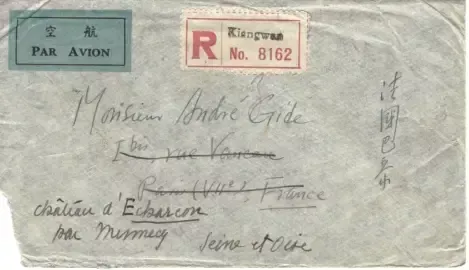 空 航
PAR AVION
Kiangwan
R No. 8162
Monsieur André Gide
1bis, rue Vaneau
Paris (VIIe) France
法國巴黎
château d'Echarcon
par Mennecy Seine et Oise